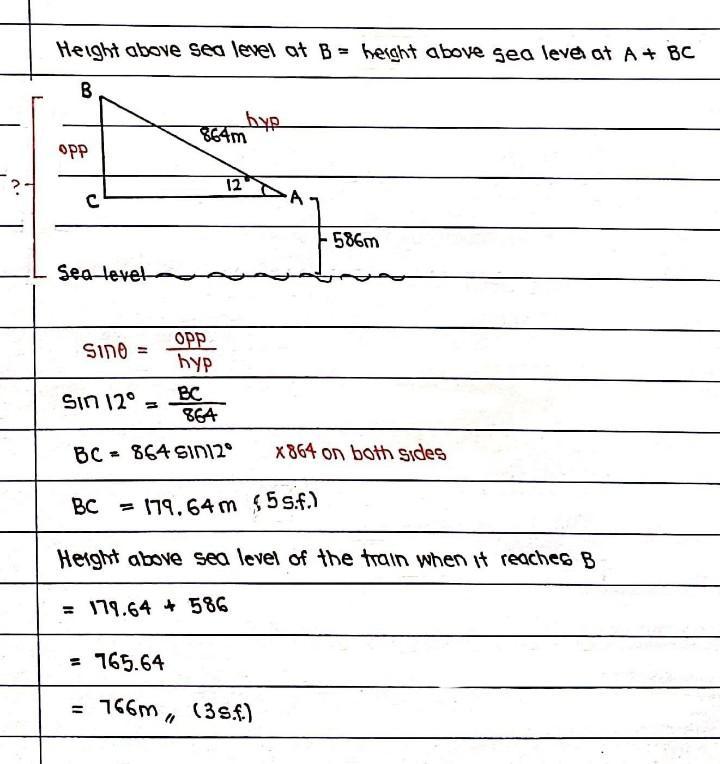 Height above sea level at B = height above sea level at A + BC
B
hyp
864m
opp
?
12°
C
A
586m
Sea level
sinθ = opp/hyp
Sin 12° = BC/864
BC = 864 sin12° ×864 on both sides
BC = 179.64m (5s.f.)
Height above sea level of the train when it reaches B
= 179.64 + 586
= 765.64
= 766m,, (3s.f.)